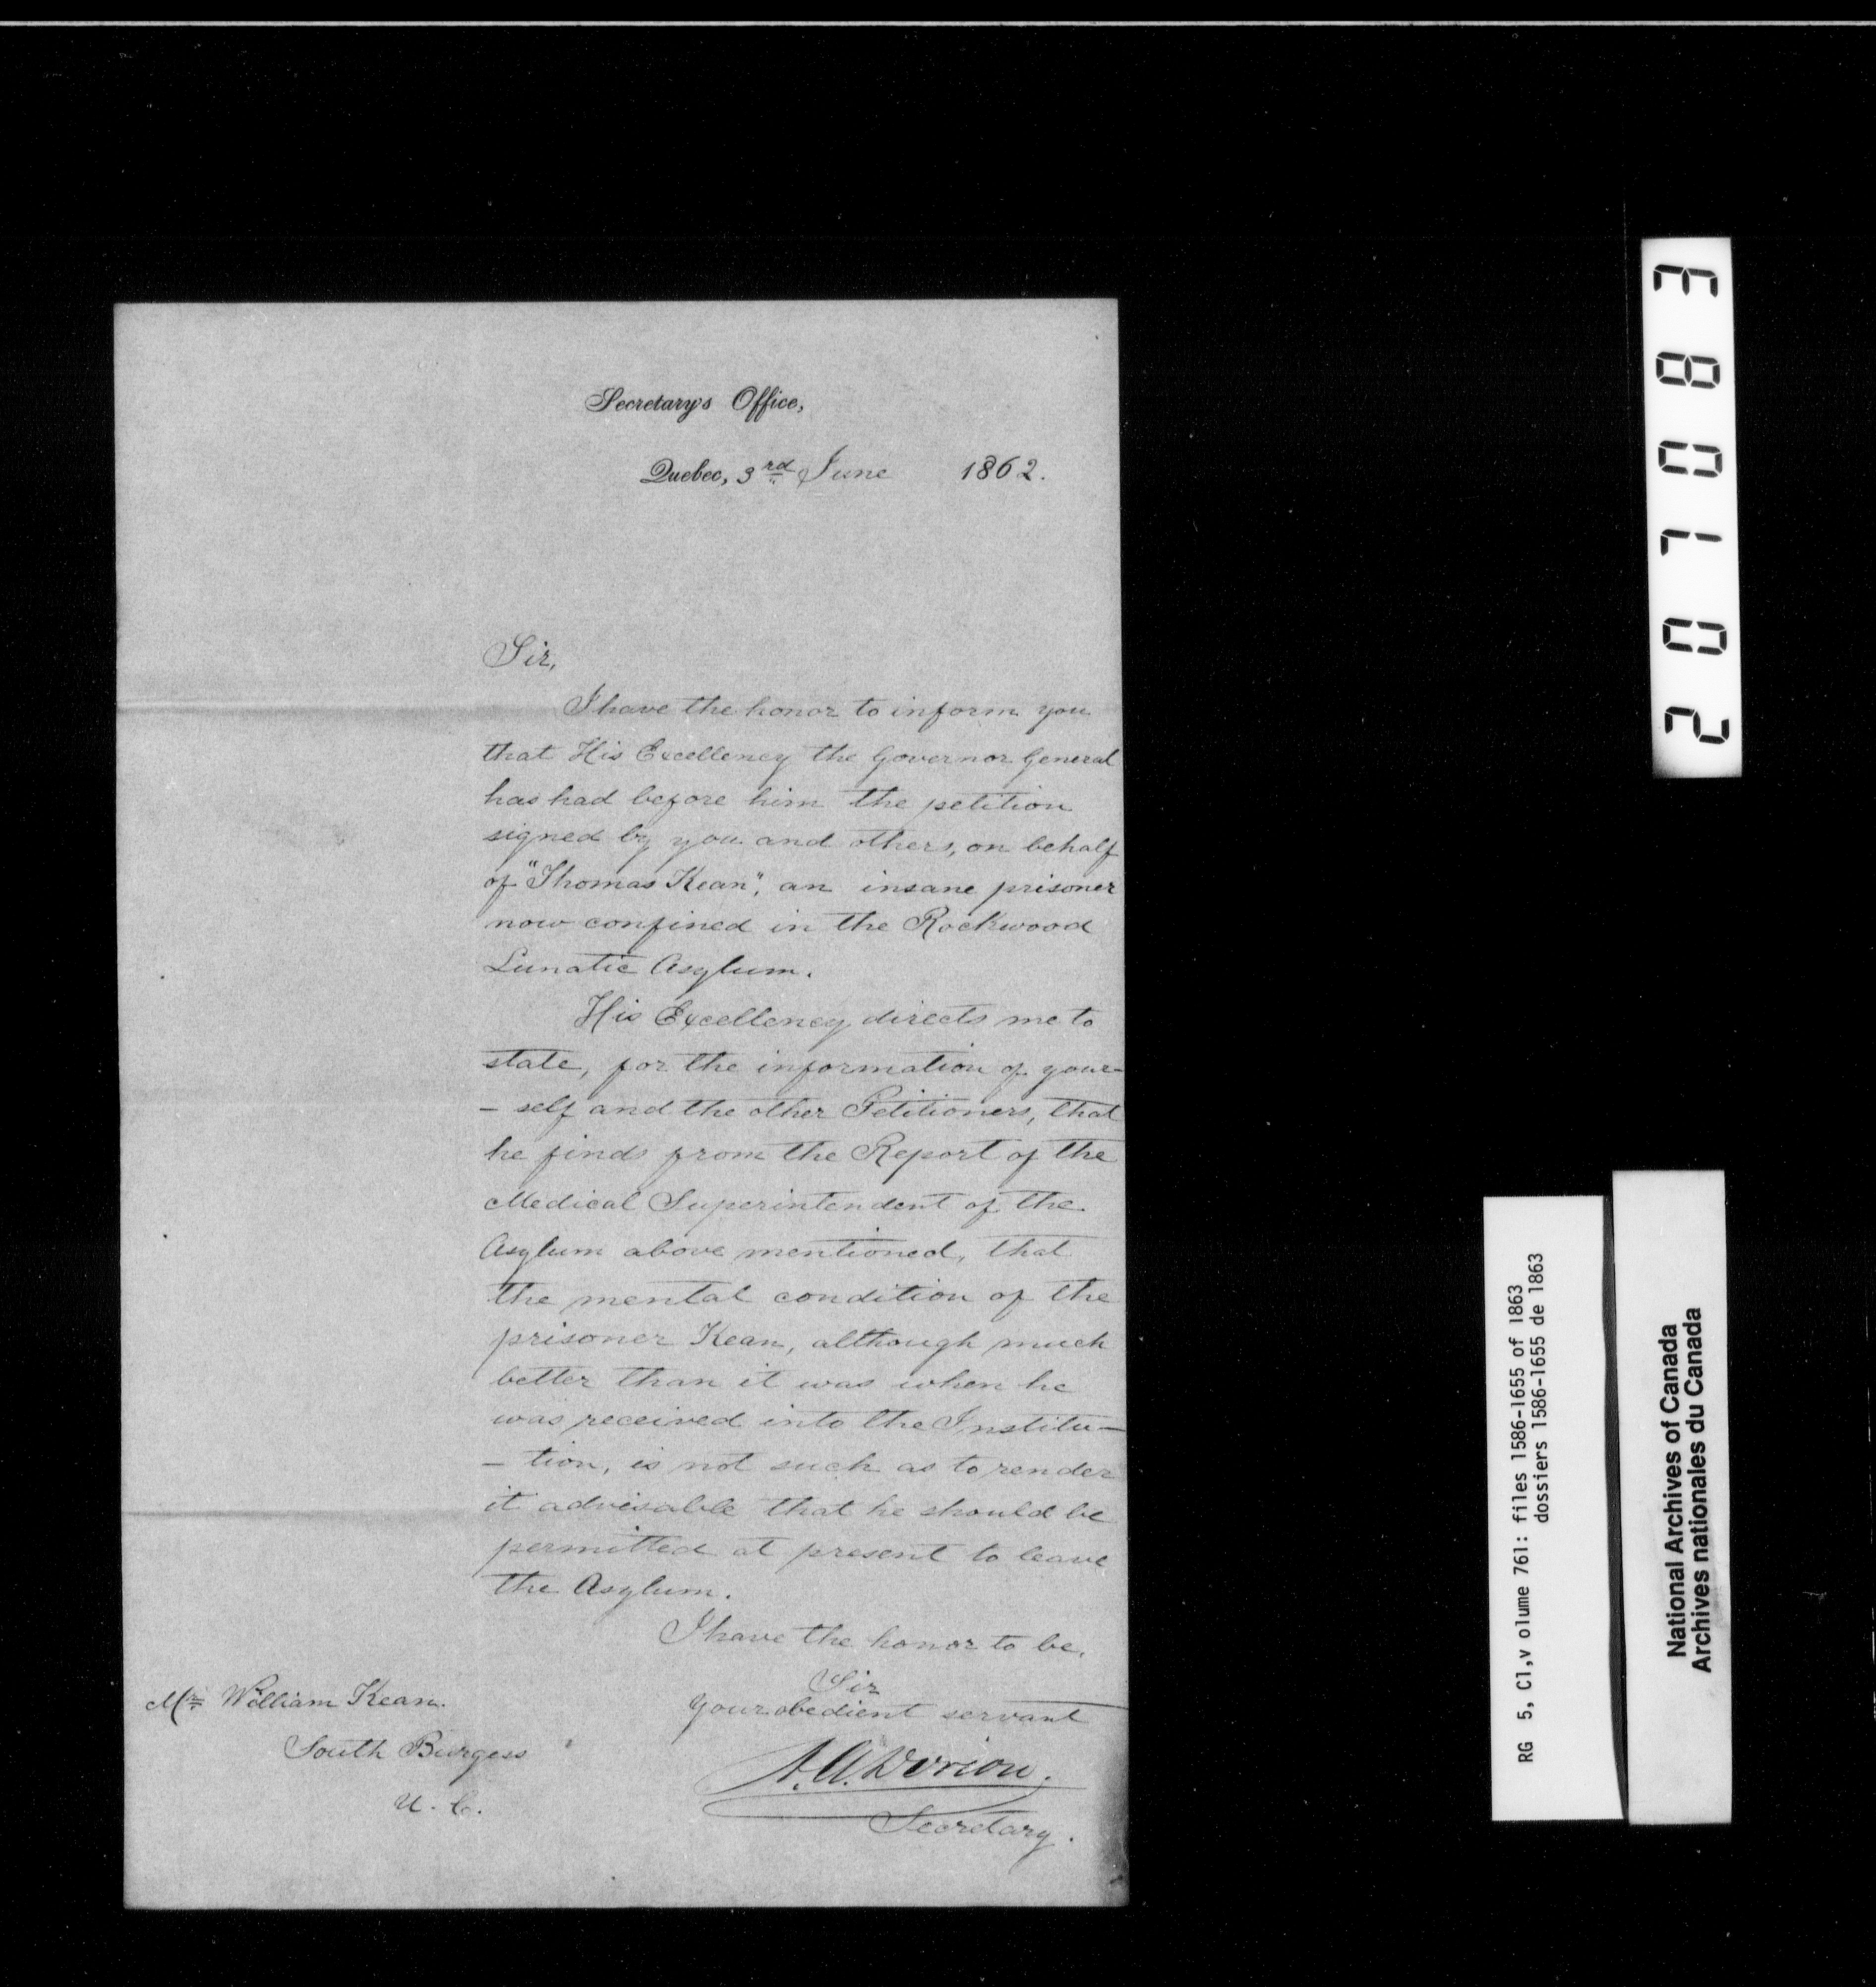 Secretary's Office,
Quebec, 3rd June 1862.
Sir,
I have the honor to inform you
that His Excellency the Governor General
has had before him the petition
signed by you and others, on behalf
of "Thomas Kean", an insane prisoner
now confined in the Rockwood
Lunatic Asylum.
His Excellency directs me to
state, for the information of your-
- self and the other Petitioners, that
he finds from the Report of the
Medical Superintendent of the
Asylum above mentioned, that
the mental condition of the
prisoner Kean, although much
better than it was when he
was received into the Institu-
- tion, is not such as to render
it advisable that he should be
permitted at present to leave
the Asylum.
I have the honor to be,
Sir
Your obedient servant
A. A. Dorion.
Secretary.
Mr William Kean.
South Burgess
U. C.
201083
RG 5, C1,v olume 761: files 1586-1655 of 1863
dossiers 1586-1655 de 1863
National Archives of Canada
Archives nationales du Canada